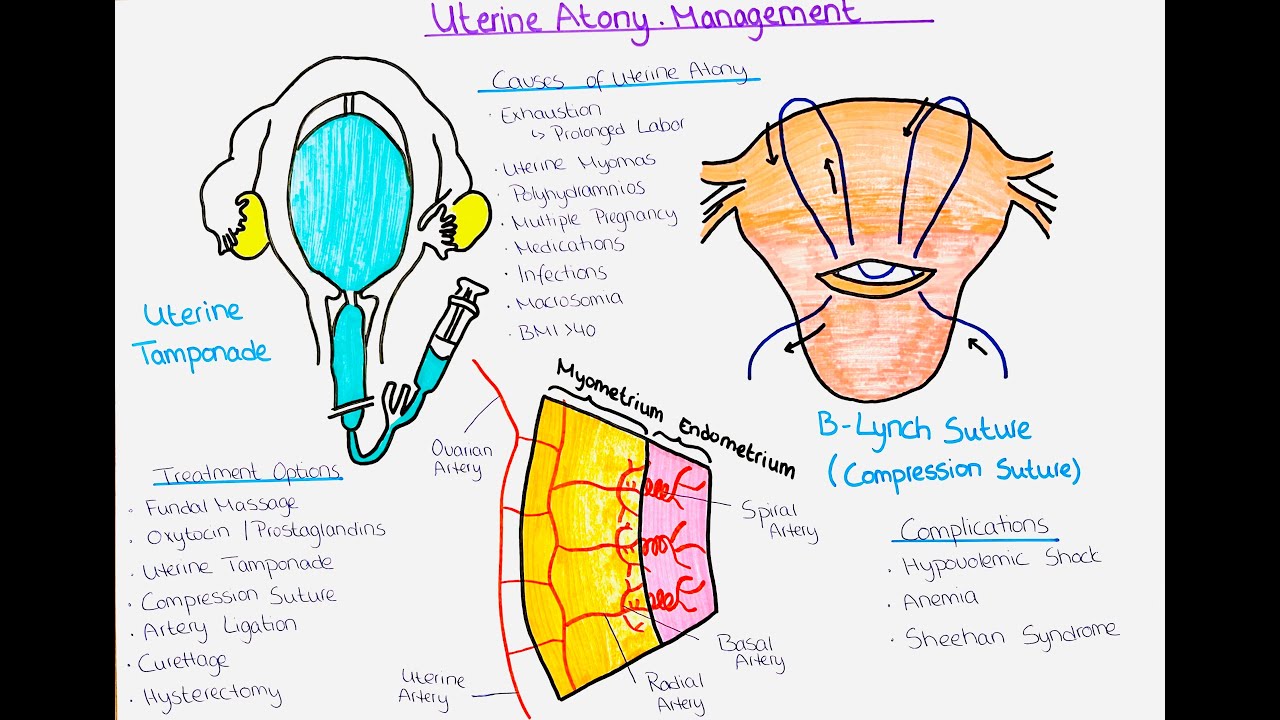 Uterine Atony. Management
Causes of Uterine Atony
· Exhaustion
↳ Prolonged Labor
· Uterine Myomas
· Polyhydramnios
· Multiple Pregnancy
· Medications
· Infections
· Macrosomia
· BMI >40
Uterine
Tamponade
B-Lynch Suture
(Compression Suture)
Treatment Options
· Fundal Massage
· Oxytocin / Prostaglandins
· Uterine Tamponade
· Compression Suture
· Artery Ligation
· Curettage
· Hysterectomy
Myometrium
Endometrium
Ovarian
Artery
Spiral
Artery
Basal
Artery
Radial
Artery
Uterine
Artery
Complications
· Hypovolemic Shock
· Anemia
· Sheehan Syndrome